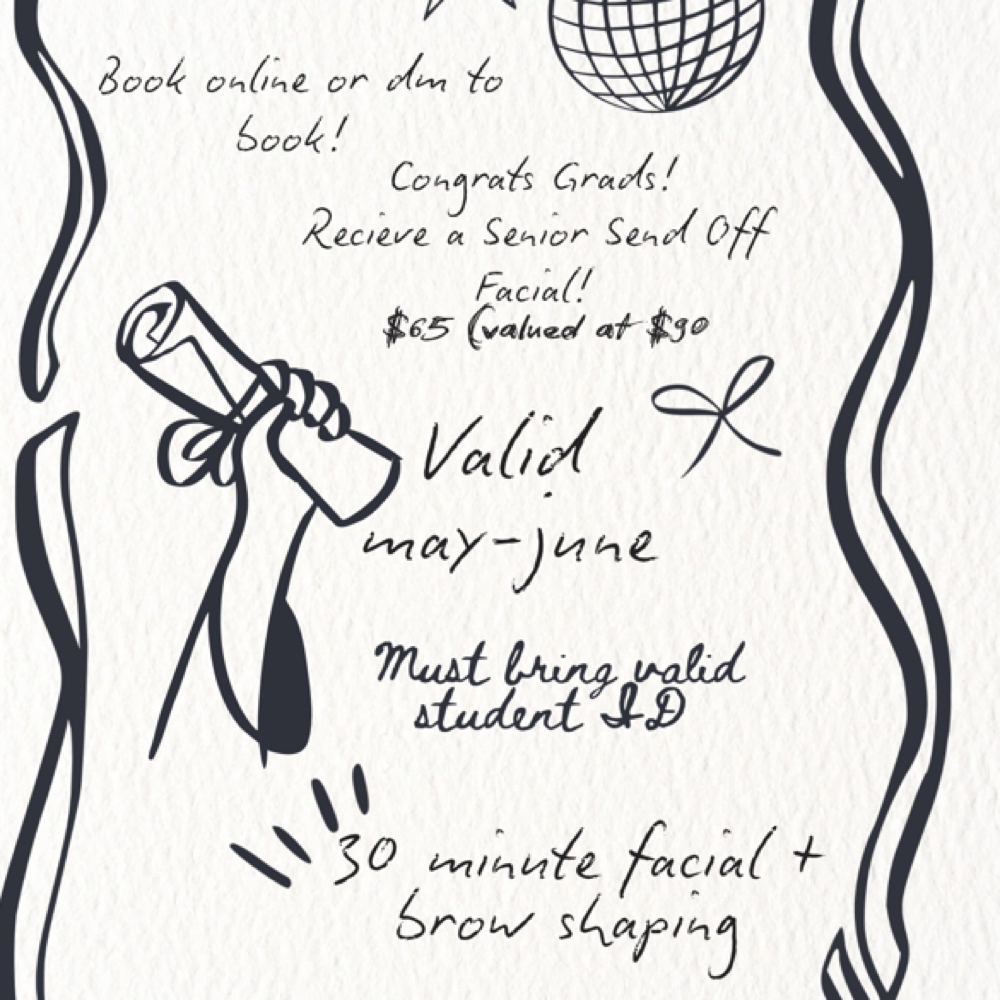 Book online or dm to
book!
Congrats Grads!
Recieve a Senior Send Off
Facial!
$65 (valued at $90
Valid
may-june
Must bring valid
student ID
30 minute facial +
brow shaping